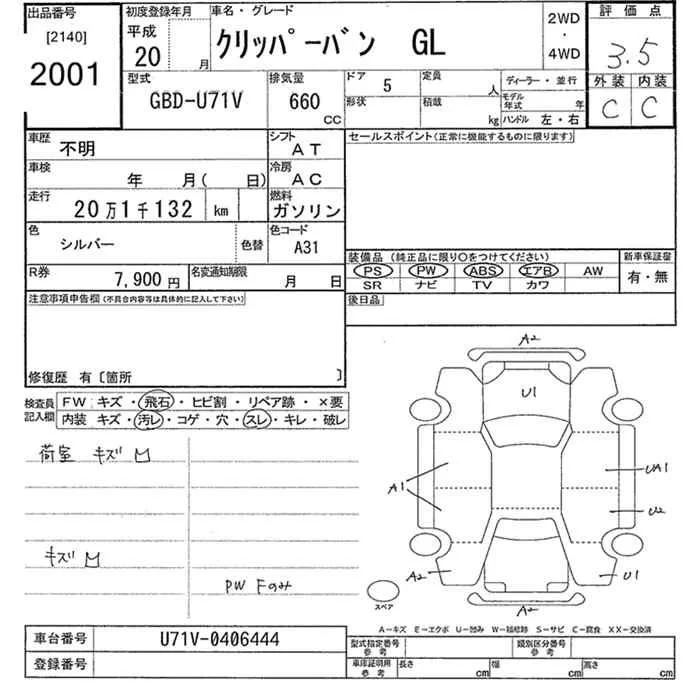 出品番号
[2140]
2001
初度登録年月
平成
20 月
車名・グレード
クリッパーバン GL
2WD
・
4WD
評価点
3.5
外装 内装
C C
型式
GBD-U71V
排気量
660
CC
ドア 5
定員 人
形状
積載 kg
ディーラー・並行
モデル年式 年
ハンドル 左・右
車歴 不明
シフト AT
車検 年 月( 日)
冷房 AC
走行 20万1千132 km
燃料 ガソリン
色 シルバー
色替
色コード A31
R券 7,900円
名変通知期限 月 日
セールスポイント(正常に機能するものに限ります)
装備品(純正品に限り○をつけてください)
PS PW ABS エアB AW
SR ナビ TV カワ
新車保証宿
有・無
後日品
注意事項申告欄(不具合内容等は具体的に記入して下さい)
修復歴 有〔箇所 〕
検査員記入欄
FW キズ・飛石・ヒビ割・リペア跡・×要
内装 キズ・汚レ・コゲ・穴・スレ・キレ・破レ
荷室 キズM
キズM
PW Fのみ
A2
U1
A1
UA1
U2
A2
U1
A2
スペア
A-キズ E-エクボ U-凹み W-補修跡 S-サビ C-腐食 XX-交換済
車台番号 U71V-0406444
登録番号
型式指定番号 参考
類別区分番号 参考
車庫証明用 参考
長さ cm
幅 cm
高さ cm